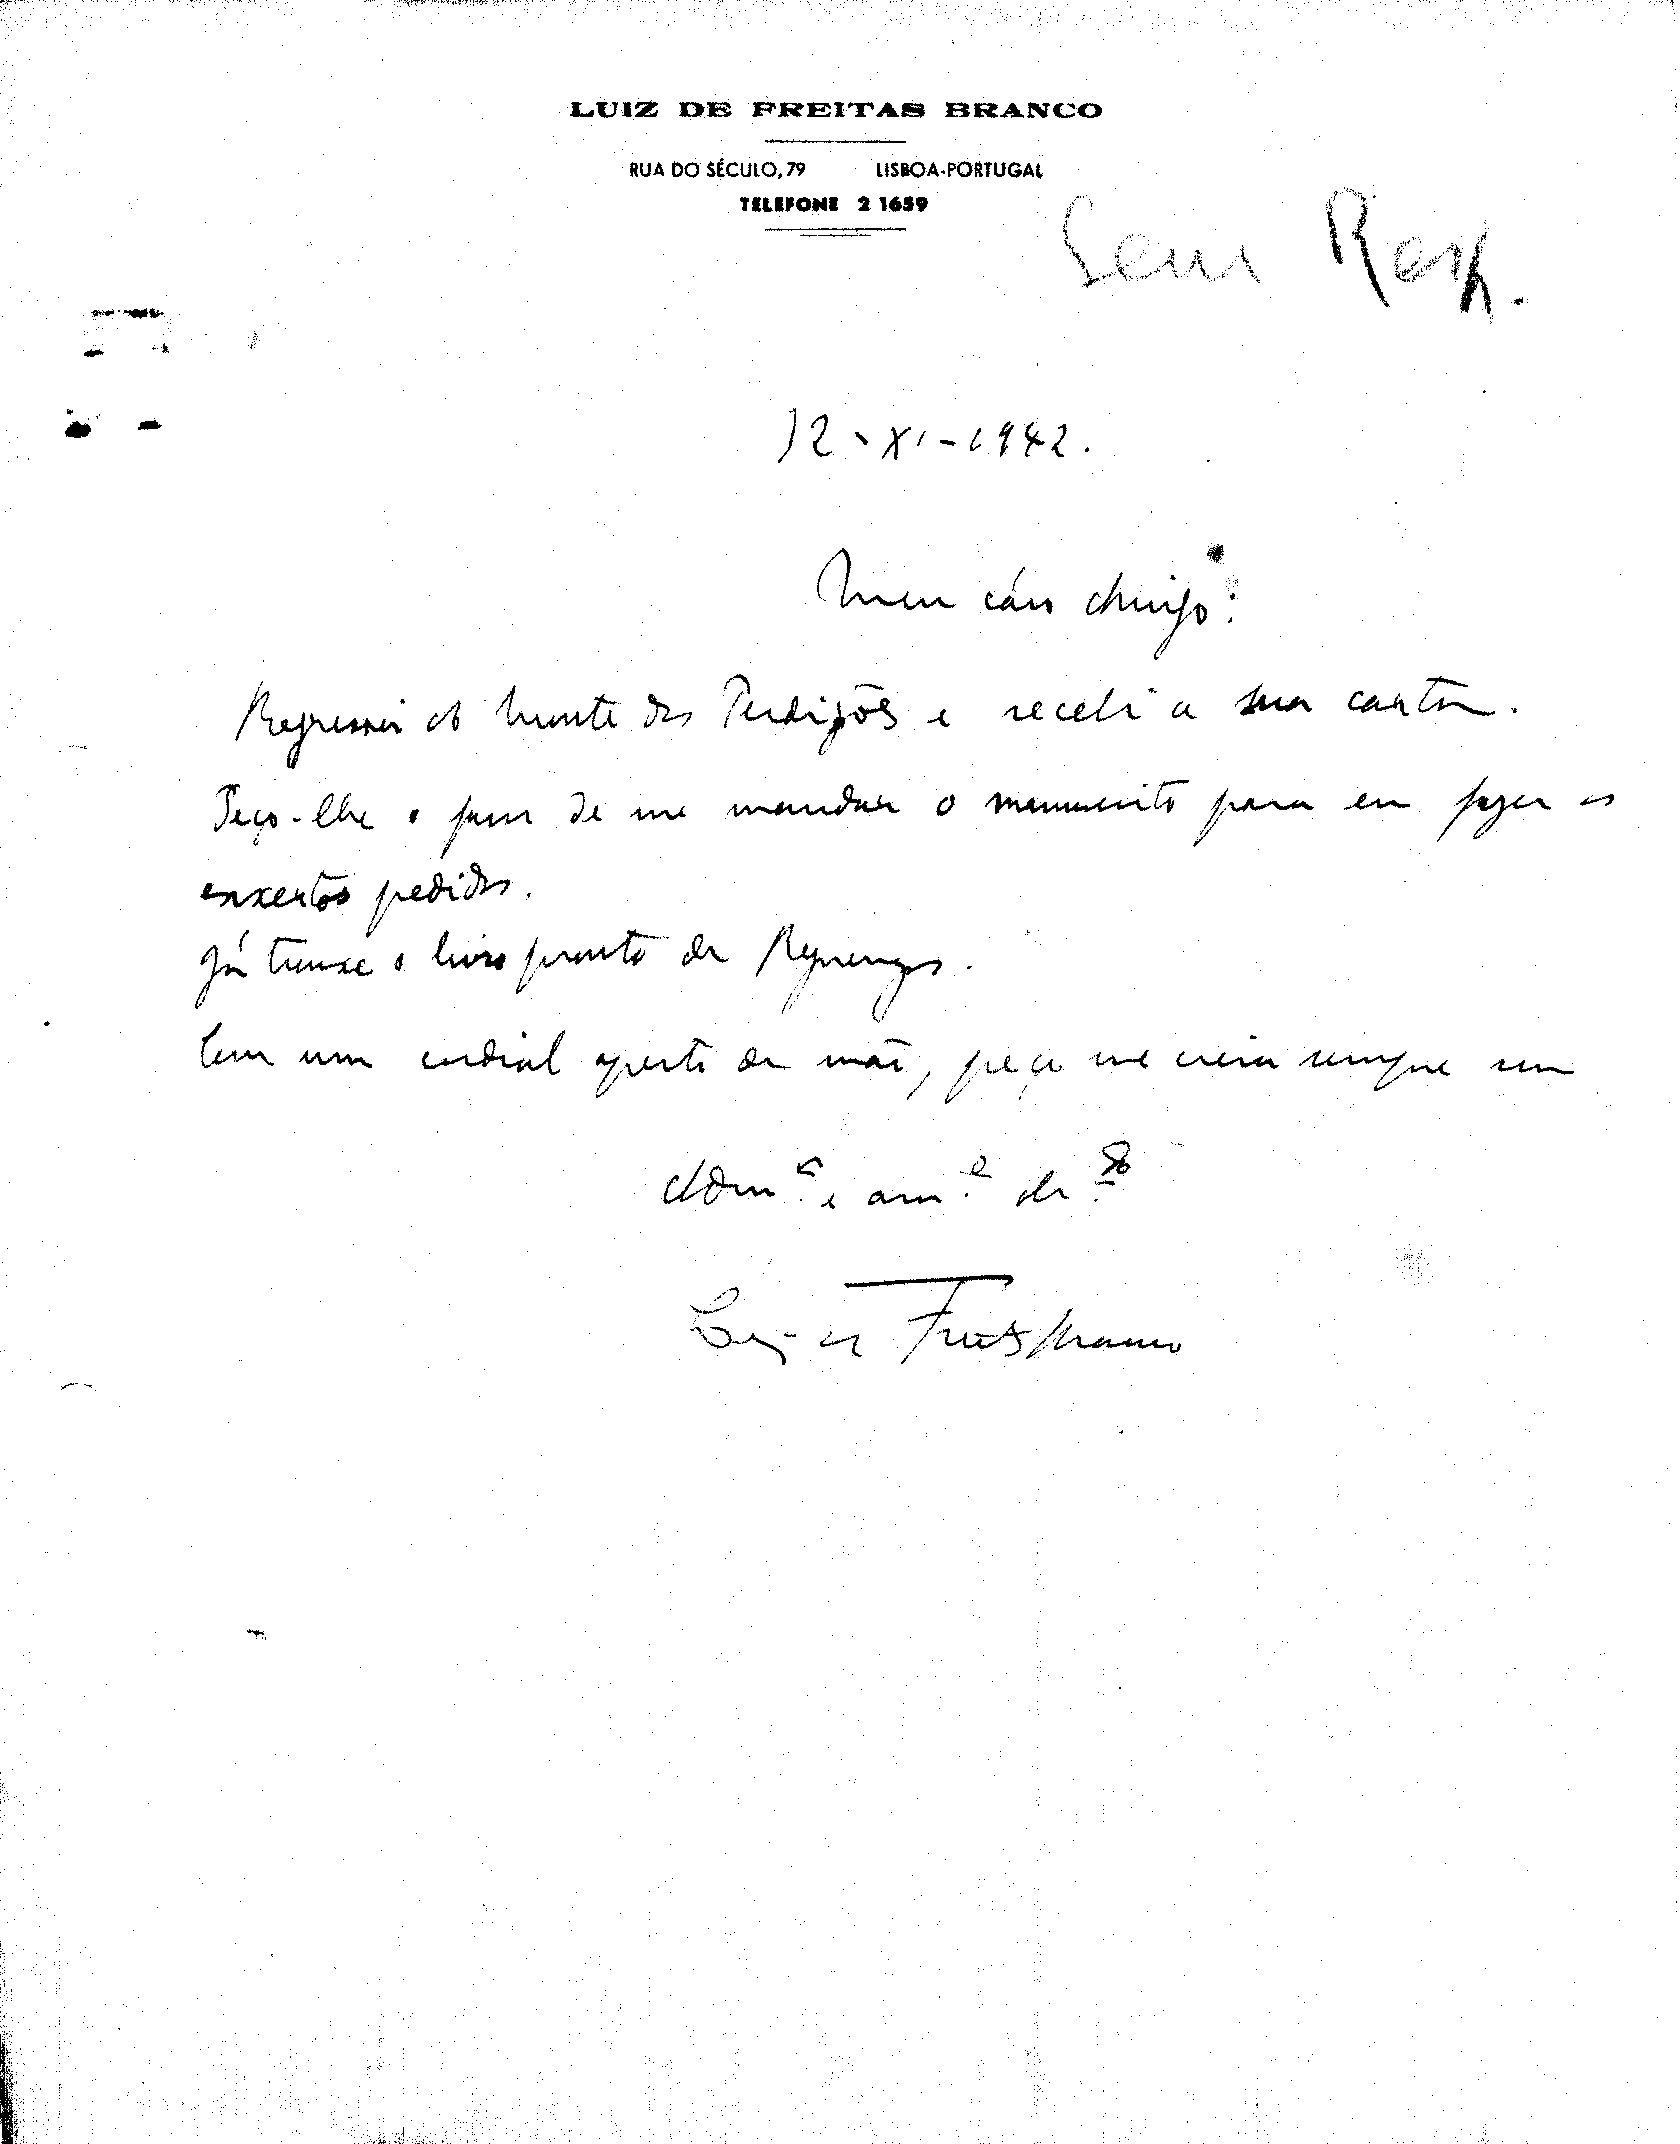 LUIZ DE FREITAS BRANCO
RUA DO SÉCULO, 79 LISBOA-PORTUGAL
TELEFONE 2 1659
Sem Resp.
12-XI-1942.
Meu cáro Amigo:
Regressei do Monte das Perdigões e recebi a sua carta.
Peço-lhe o favor de me mandar o manuscrito para eu fazer os
enxertos pedidos.
Já trouxe o livro pronto de Reguengos.
Com um cordial aperto de mão, peço me creia sempre seu
Adm.ᵒʳ e am.º de
Luiz de Freitas Branco